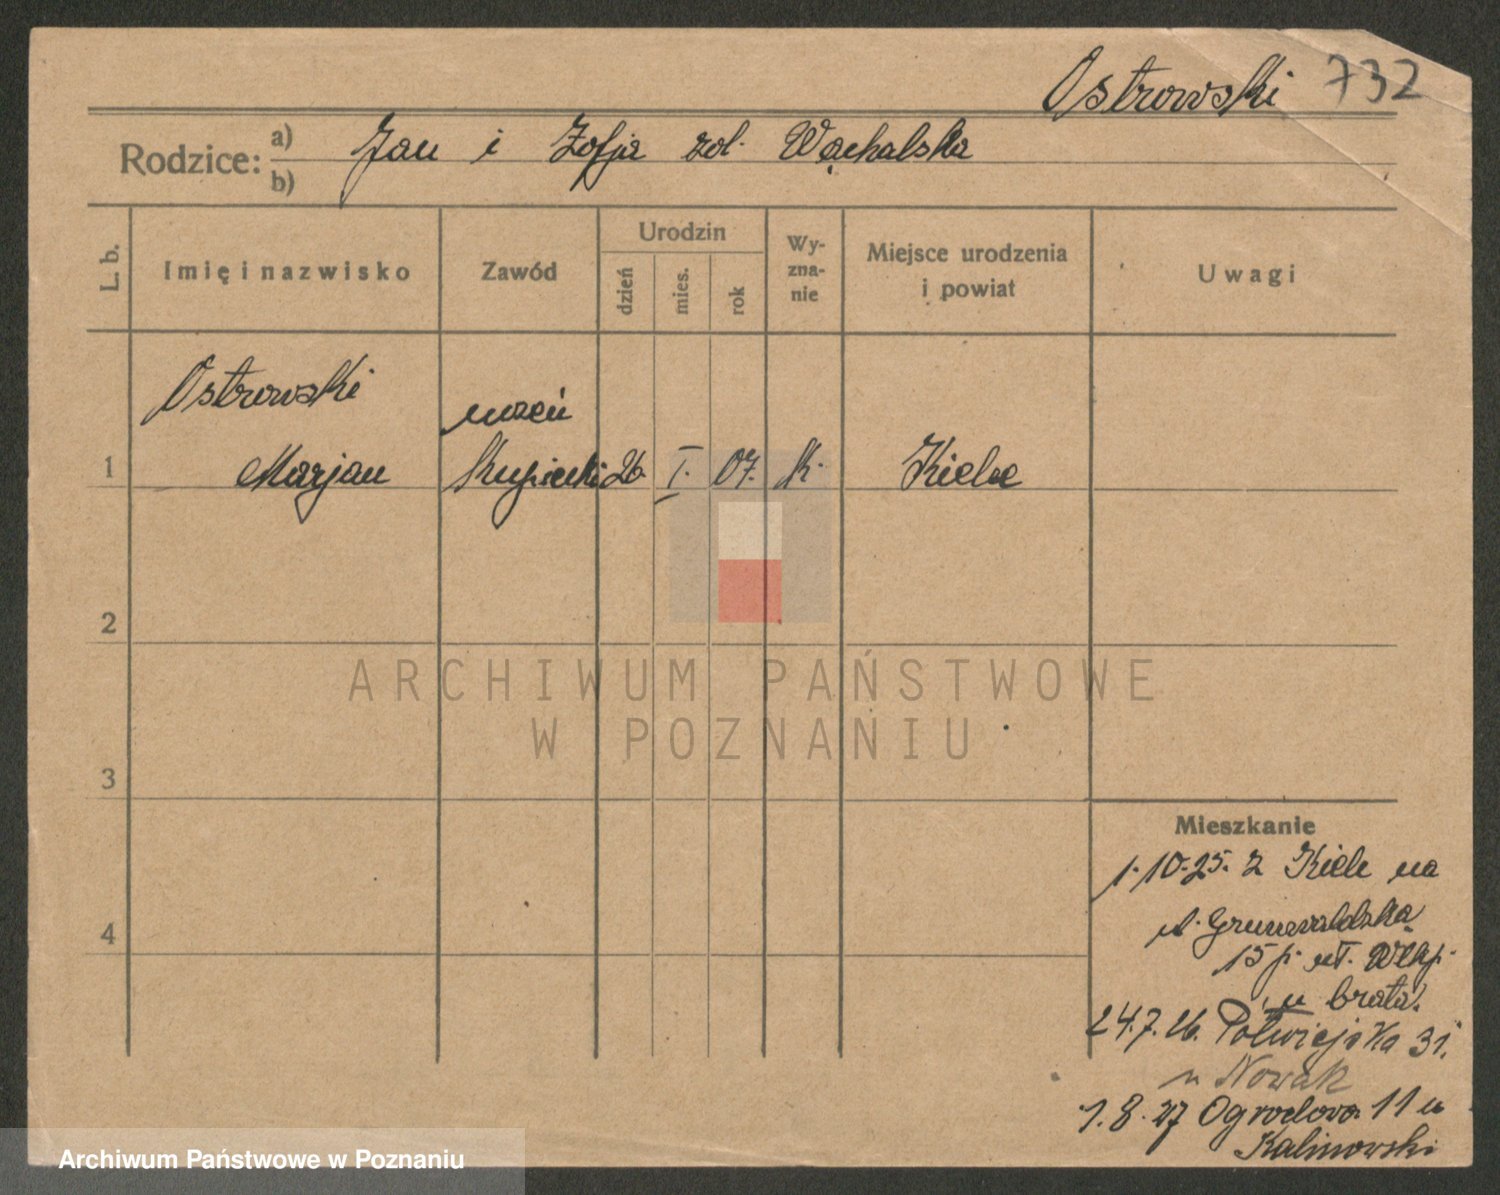 Ostrowski 732
Rodzice: a) b) Jan i Zofja zol. Wąchalska
L. b.
Imię i nazwisko
Zawód
Urodzin
dzień
mies.
rok
Wy-
zna-
nie
Miejsce urodzenia
i powiat
Uwagi
Ostrowski
uczeń
1 Marjan kupiecki 26. I. 07. k. Kielce
2
3
4
ARCHIWUM PAŃSTWOWE
W POZNANIU
Mieszkanie
1.10.25. z Kielc na
Grunwaldzka
15 p.
u brata.
24.7.26. Półwiejska 31.
u Nowak
1.8.27 Ogrodowa 11 u
Kalinowski
Archiwum Państwowe w Poznaniu